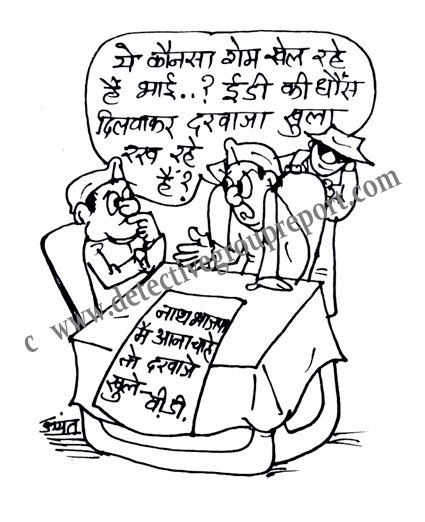 ये कौनसा गेम खेल रहे
हैं भाई..? ईडी की धौंस
दिलवाकर दरवाजा खुला
रख रहे
हैं?
c www.detectivegroupreport.com
नाथ भाजपा
में आना चाहे
तो दरवाजे
खुले-
वी.डी.